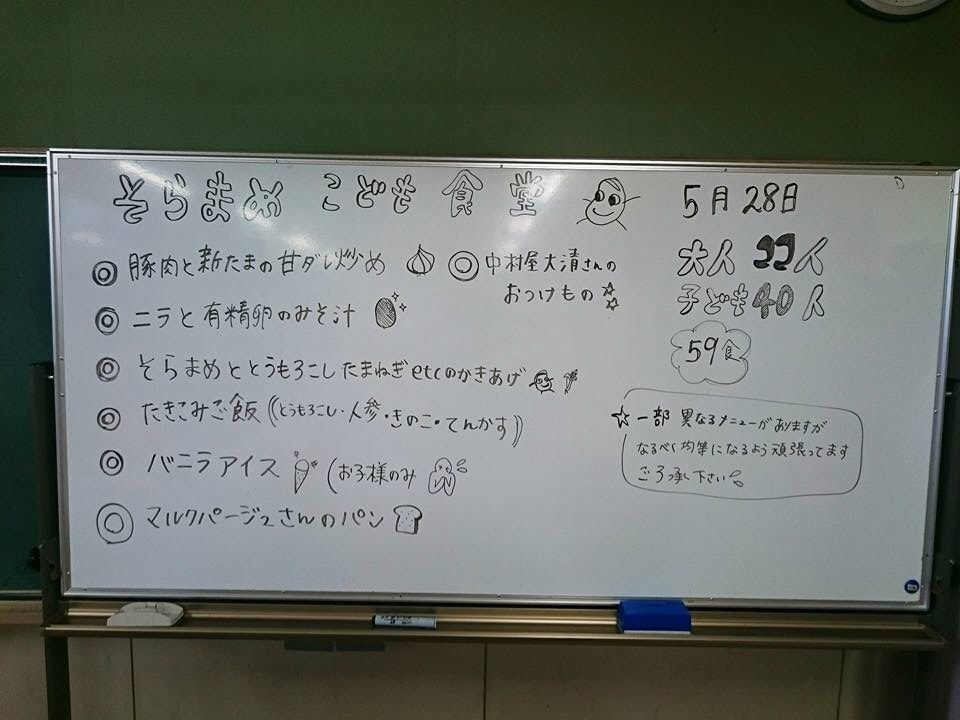 そらまめ こども食堂
5月28日
◎ 豚肉と新たまの甘ダレ炒め
◎ 中村屋大清さんの
おつけもの
◎ ニラと有精卵のみそ汁
◎ そらまめととうもろこしたまねぎetcのかきあげ
◎ たきこみご飯(とうもろこし・人参・きのこ・てんかす)
◎ バニラアイス (お子様のみ
◎ マルクパージュさんのパン
大人 人
子ども40人
59食
☆一部 異なるメニューがありますが
なるべく均等になるよう頑張ってます
ご了承下さい